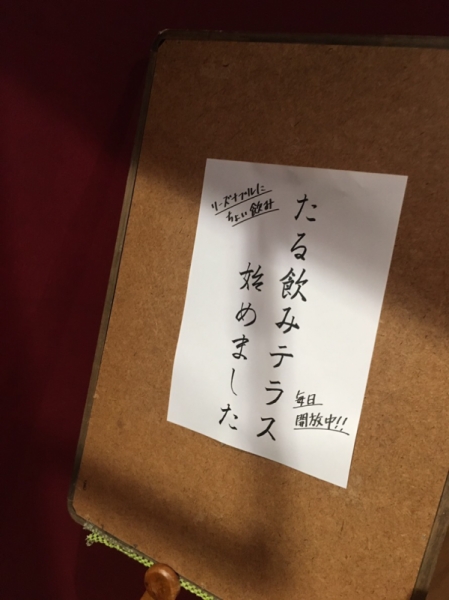 たる飲みテラス
始めました
リーズナブルに
ちょい飲み
毎日
開放中!!